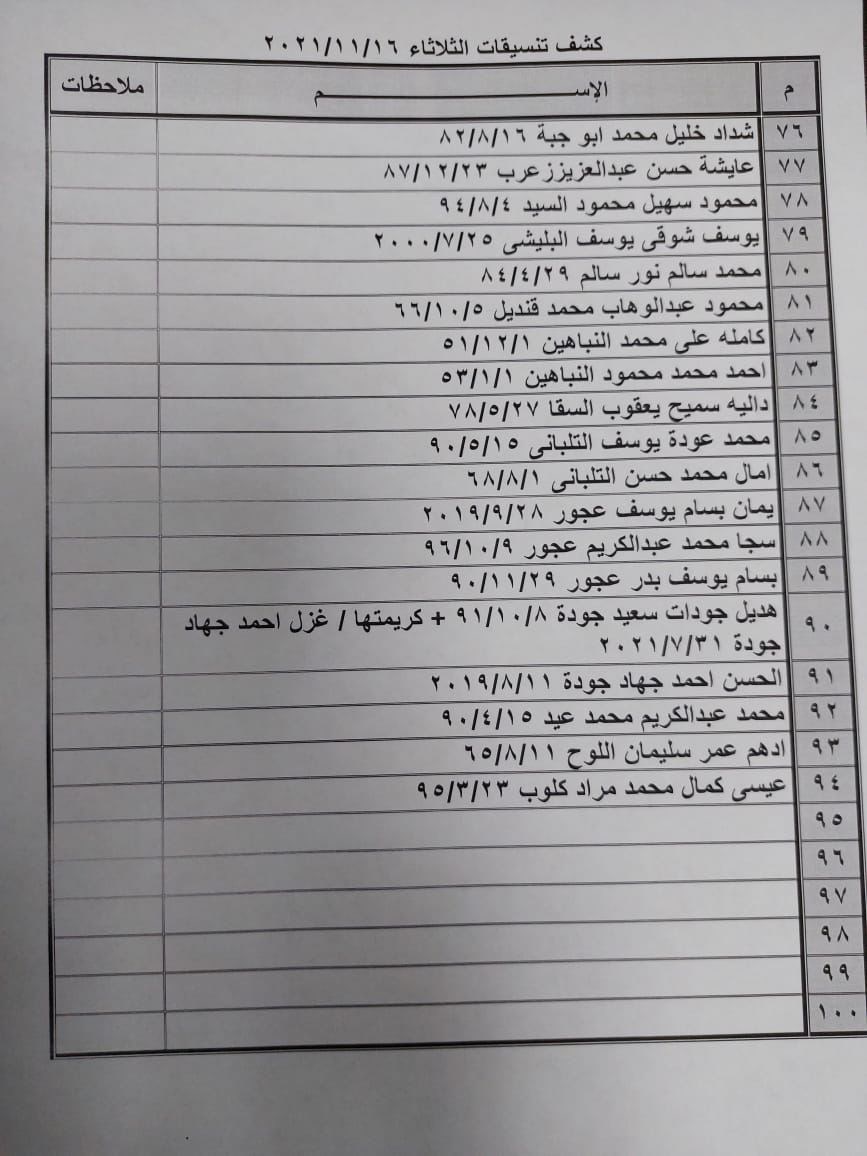 كشف تنسيقات الثلاثاء ٢٠٢١/١١/١٦
م الإســـــــــــــــــــم ملاحظات
٧٦ شداد خليل محمد ابو جبة ٨٢/٨/١٦
٧٧ عايشة حسن عبدالعزيززعرب ٨٧/١٢/٢٣
٧٨ محمود سهيل محمود السيد ٩٤/٨/٤
٧٩ يوسف شوقى يوسف البليشى ٢٠٠٠/٧/٢٥
٨٠ محمد سالم نور سالم ٨٤/٤/٢٩
٨١ محمود عبدالوهاب محمد قنديل ٦٦/١٠/٥
٨٢ كامله على محمد النباهين ٥١/١٢/١
٨٣ احمد محمد محمود النباهين ٥٣/١/١
٨٤ داليه سميح يعقوب السقا ٧٨/٥/٢٧
٨٥ محمد عودة يوسف التلبانى ٩٠/٥/١٥
٨٦ امال محمد حسن التلبانى ٦٨/٨/١
٨٧ يمان بسام يوسف عجور ٢٠١٩/٩/٢٨
٨٨ سجا محمد عبدالكريم عجور ٩٦/١٠/٩
٨٩ بسام يوسف بدر عجور ٩٠/١١/٢٩
٩٠ هديل جودات سعيد جودة ٩١/١٠/٨ + كريمتها / غزل احمد جهاد
جودة ٢٠٢١/٧/٣١
٩١ الحسن احمد جهاد جودة ٢٠١٩/٨/١١
٩٢ محمد عبدالكريم محمد عيد ٩٠/٤/١٥
٩٣ ادهم عمر سليمان اللوح ٦٥/٨/١١
٩٤ عيسى كمال محمد مراد كلوب ٩٥/٣/٢٣
٩٥
٩٦
٩٧
٩٨
٩٩
١٠٠